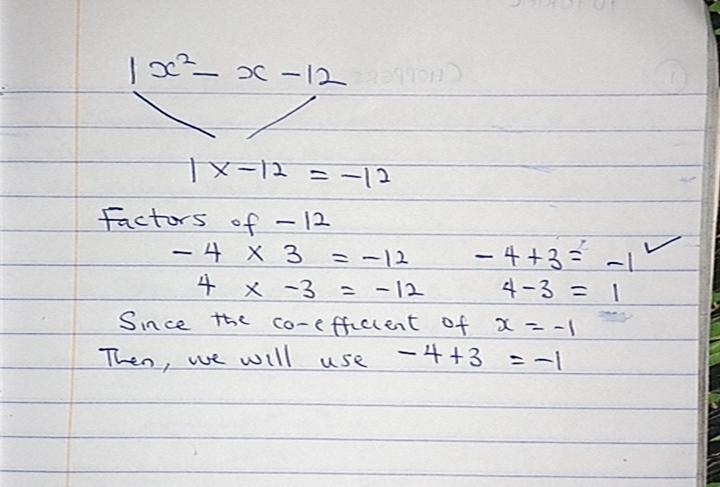 1x² - x - 12
1 × -12 = -12
Factors of -12
-4 × 3 = -12 -4+3 = -1 ✓
4 × -3 = -12 4-3 = 1
Since the co-efficient of x = -1
Then, we will use -4+3 = -1